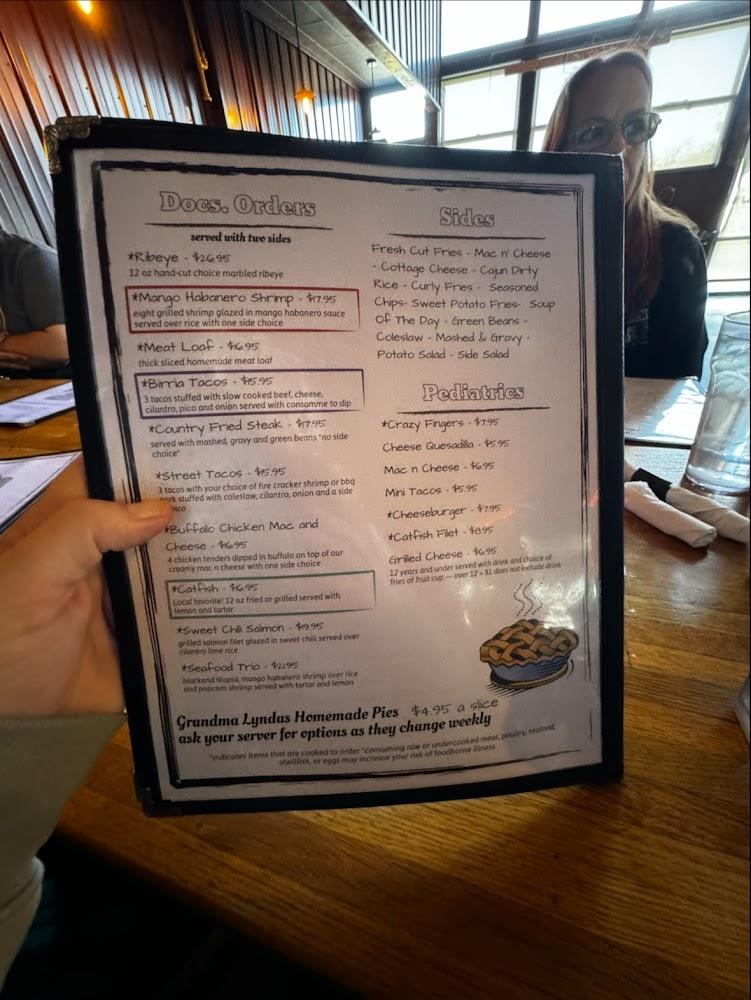 Docs. Orders
served with two sides
*Ribeye - $26.95
12 oz hand-cut choice marbled ribeye
*Mango Habanero Shrimp - $17.95
eight grilled shrimp glazed in mango habanero sauce
served over rice with one side choice
*Meat Loaf - $16.95
thick sliced homemade meat loaf
*Birria Tacos - $15.95
3 tacos stuffed with slow cooked beef, cheese,
cilantro, pico and onion served with consomme to dip
*Country Fried Steak - $17.95
served with mashed, gravy and green beans *no side
choice*
*Street Tacos - $15.95
3 tacos with your choice of fire cracker shrimp or bbq
pork stuffed with coleslaw, cilantro, onion and a side
*Buffalo Chicken Mac and
Cheese - $16.95
4 chicken tenders dipped in buffalo on top of our
creamy mac n cheese with one side choice
*Catfish - $16.95
Local favorite! 12 oz fried or grilled served with
lemon and tartar
*Sweet Chili Salmon - $19.95
grilled salmon filet glazed in sweet chili served over
cilantro lime rice
*Seafood Trio - $21.95
blackend tilapia, mango habanero shrimp over rice
and popcorn shrimp served with tartar and lemon
Sides
Fresh Cut Fries - Mac n' Cheese
- Cottage Cheese - Cajun Dirty
Rice - Curly Fries - Seasoned
Chips- Sweet Potato Fries- Soup
Of The Day - Green Beans -
Coleslaw - Mashed & Gravy -
Potato Salad - Side Salad
Pediatrics
*Crazy Fingers - $7.95
Cheese Quesadilla - $5.95
Mac n Cheese - $6.95
Mini Tacos - $5.95
*Cheeseburger - $7.95
*Catfish Filet - $8.95
Grilled Cheese - $6.95
12 years and under served with drink and choice of
fries of fruit cup --- over 12 + $1 does not include drink
Grandma Lyndas Homemade Pies $4.95 a slice
ask your server for options as they change weekly
*indicates items that are cooked to order *consuming raw or undercooked meat, poultry, seafood,
shellfish, or eggs may increase your risk of foodborne illness